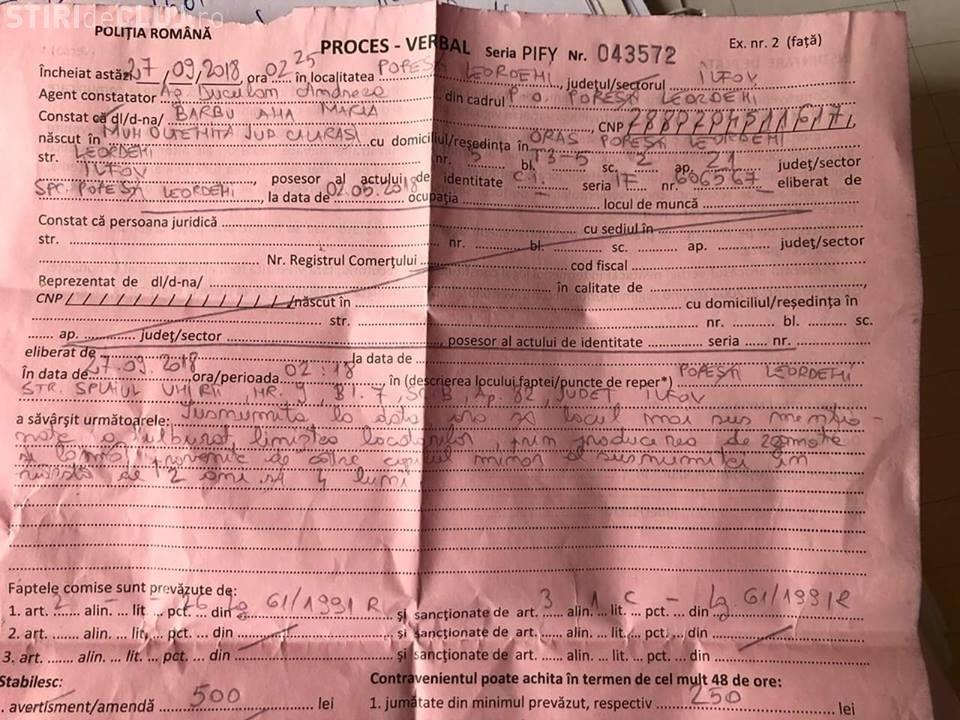 ȘTIRIdeCLUJ.ro
POLIȚIA ROMÂNĂ
PROCES - VERBAL Seria PIFY Nr. 043572 Ex. nr. 2 (față)
Încheiat astăzi 27/09/2018 ora 02 25 în localitatea POPEȘTI LEORDENI, județul/sectorul ILFOV
Agent constatator Ag. Andreea din cadrul P.O. POPEȘTI LEORDENI
Constat că dl/d-na/ BARBU ANA MARIA, CNP
născut în JUD CALARASI cu domiciliul/reședința în ORAS POPEȘTI LEORDENI
str. LEORDENI nr. 5 bl. T3-5 sc. 2 ap. 21 județ/sector
ILFOV, posesor al actului de identitate C.I. seria IF nr. 606567 eliberat de
SPC. POPESTI LEORDENI, la data de 02.05.2018 ocupația - locul de muncă
Constat că persoana juridică cu sediul în
str. nr. bl. sc. ap. județ/sector
Nr. Registrul Comerțului cod fiscal
Reprezentat de dl/d-na/ în calitate de
CNP / / / / / / / / / / / / / / născut în cu domiciliul/reședința în
str. nr. bl. sc.
ap. județ/sector, posesor al actului de identitate seria nr.
eliberat de la data de
În data de 27.09.2018, ora/perioada 02:18, în (descrierea locului faptei/puncte de reper*) POPEȘTI LEORDENI
STR. SPLAIUL UNIRII, NR. 9 Bl. 7, SC. B, Ap. 82, JUDET ILFOV
a săvârșit următoarele: Susnumita la data ora si locul mai sus mentio-
nate a tulburat linistea locatarilor, prin producerea de zgomote
si larma provenite de catre copilul minor al susnumitei in
varsta de 2 ani si 4 luni
Faptele comise sunt prevăzute de:
1. art. 2 alin. - lit. - pct. 26 din Lg 61/1991 R și sancționate de art. 3 alin. 1 lit. c pct. - din Lg. 61/1991 R
2. art. ....... alin. ... lit. ... pct. ... din și sancționate de art. ... alin. ... lit. ... pct. ... din
3. art. ....... alin. ... lit. ... pct. ... din și sancționate de art. ... alin. ... lit. ... pct. ... din
Stabilesc: Contravenientul poate achita în termen de cel mult 48 de ore:
. avertisment/amendă 500 lei 1. jumătate din minimul prevăzut, respectiv 250 lei